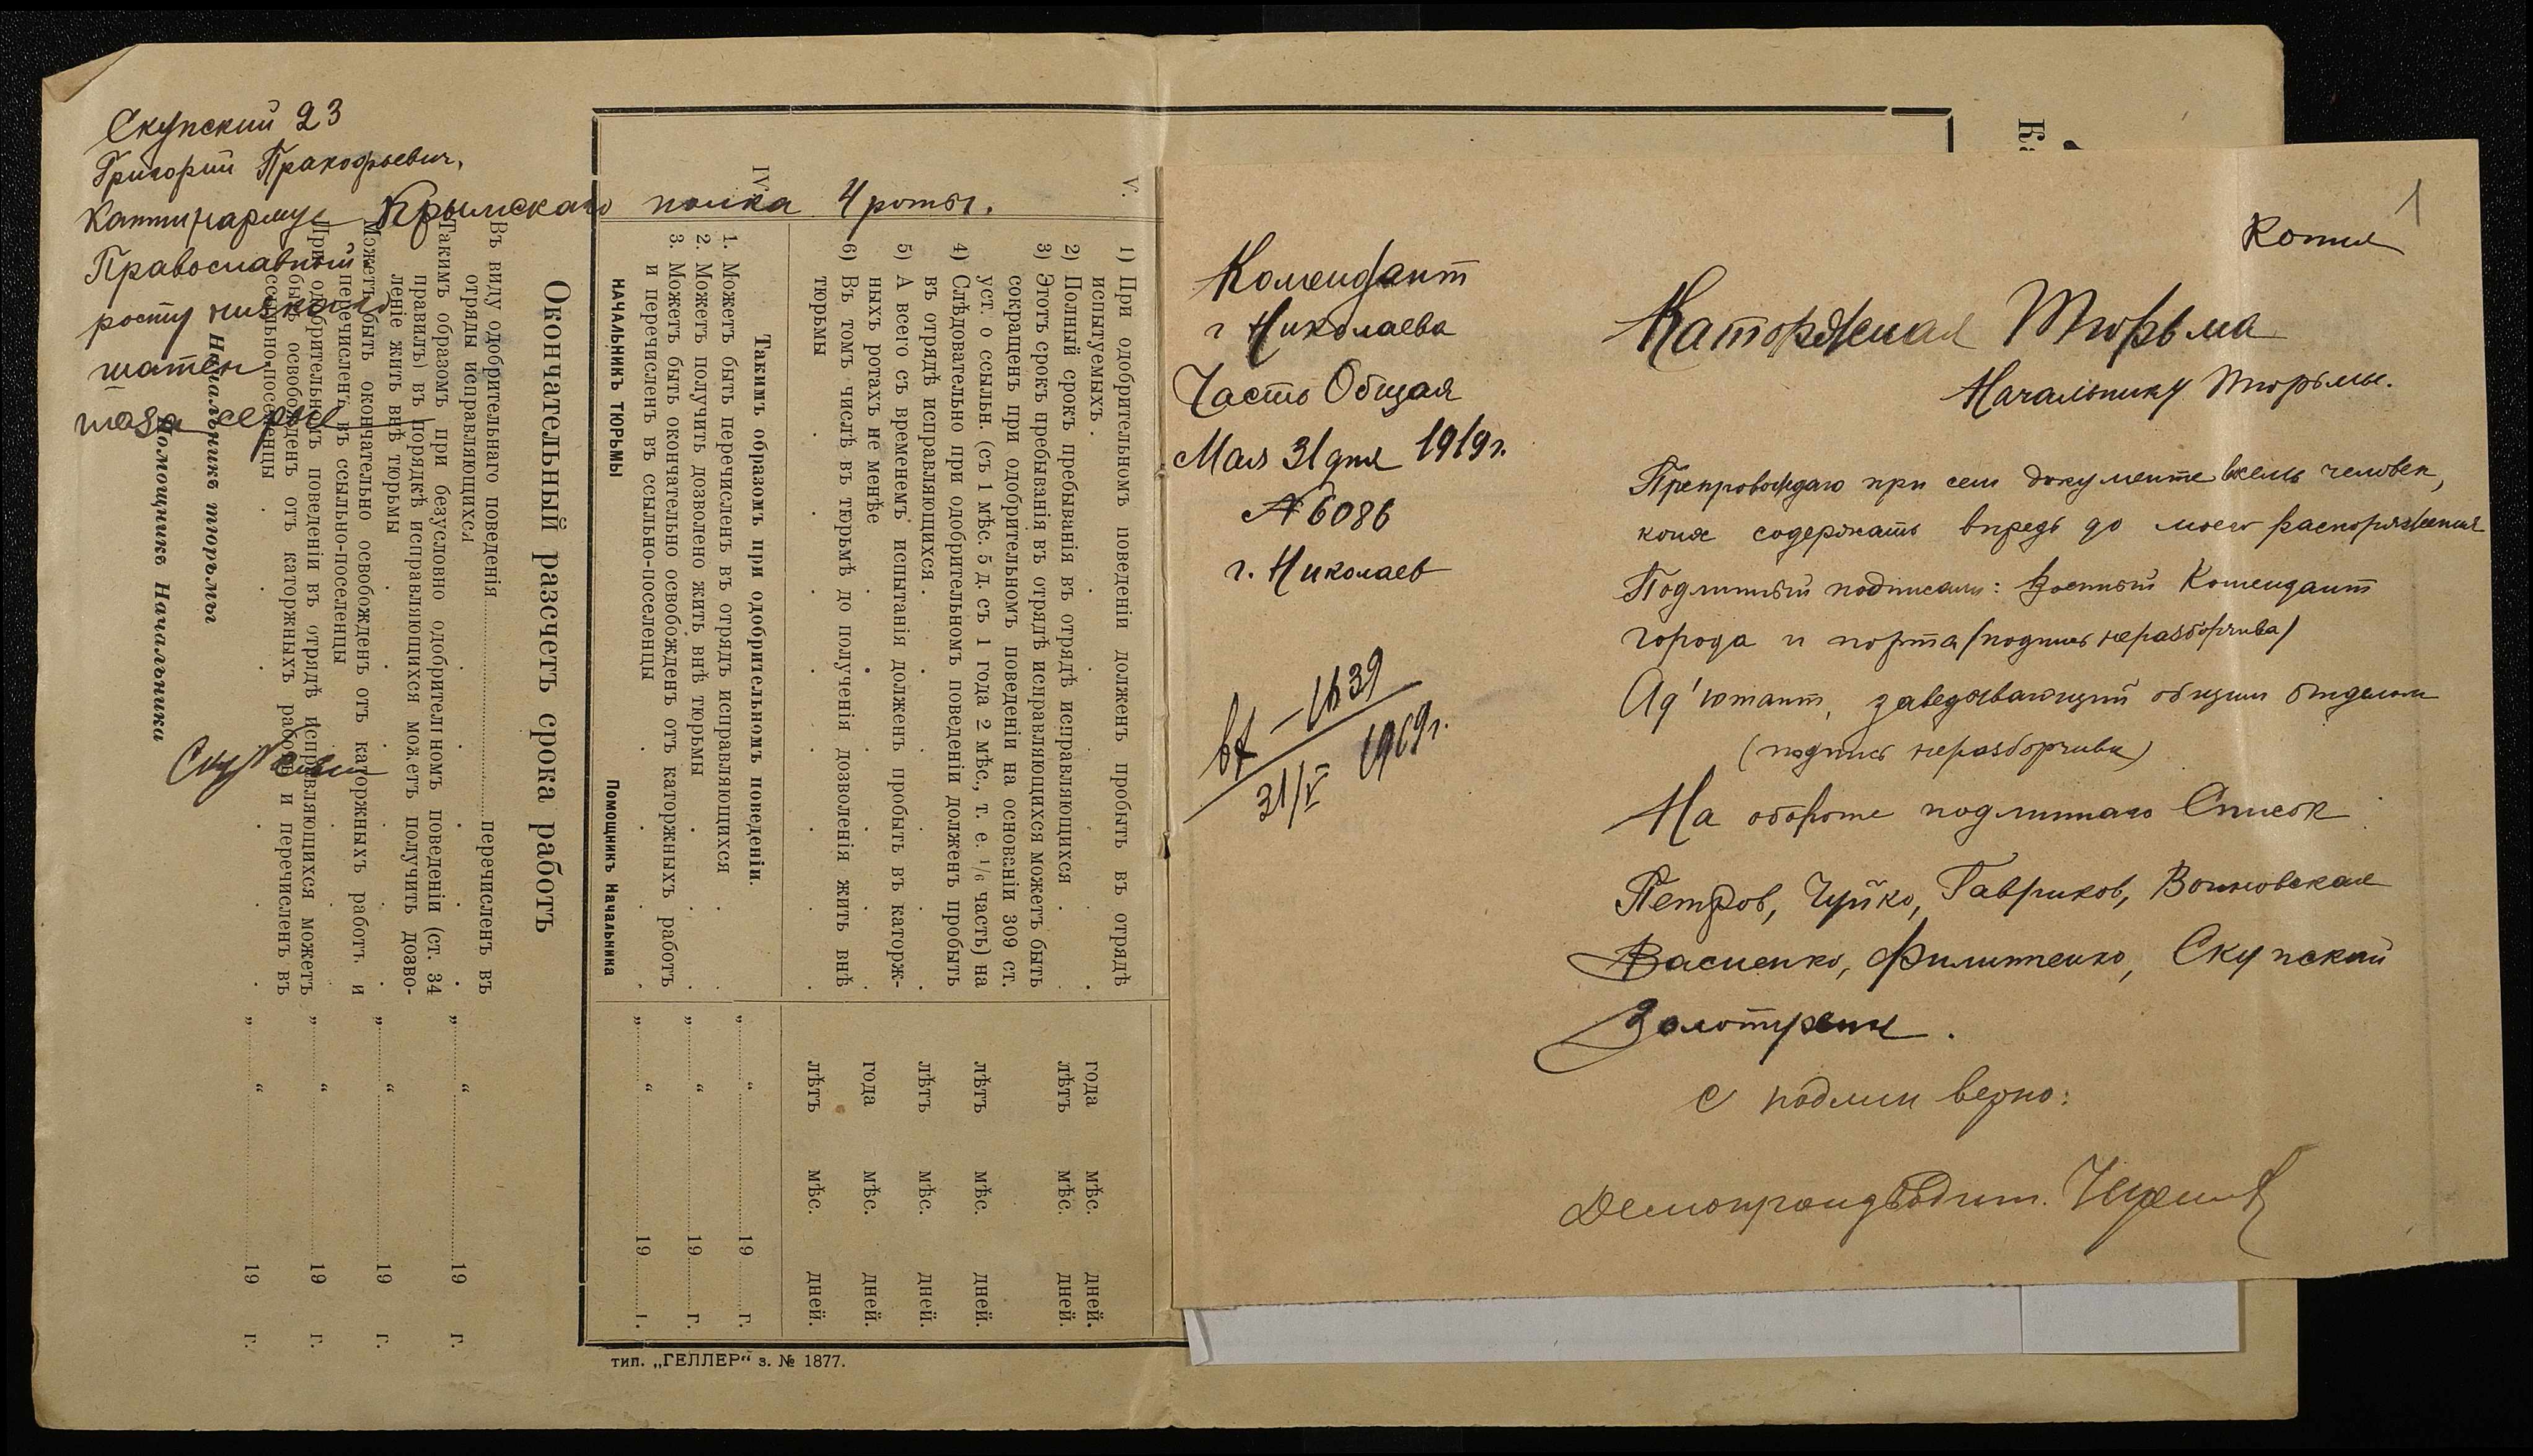 Скупский 23
Григорий Пракофьевич,
Каптинармус Крымскаго полка 4 роты.
Православный
росту низкого
шатен
глаза серые
Скупский
Окончательный разсчетъ срока работъ
Въ виду одобрительнаго поведенія перечисленъ въ
отряды исправляющихся „ “ 19 г.
Такимъ образомъ при безусловно одобрительномъ поведеніи (ст. 34
правилъ) въ порядкѣ исправляющихся можетъ получить дозво-
леніе жить внѣ тюрьмы „ “ 19 г.
Можетъ быть окончательно освобожденъ отъ каторжныхъ работъ и
перечисленъ въ ссыльно-поселенцы „ “ 19 г.
При одобрительномъ поведеніи въ отрядѣ исправляющихся можетъ
быть освобожденъ отъ каторжныхъ работъ и перечисленъ въ
ссыльно-поселенцы „ “ 19 г.
Начальникъ тюрьмы
Помощникъ Начальника
V.
1) При одобрительномъ поведеніи долженъ пробыть въ отрядѣ
испытуемыхъ года мѣс. дней.
2) Полный срокъ пребыванія въ отрядѣ исправляющихся лѣтъ мѣс. дней.
3) Этотъ срокъ пребыванія въ отрядѣ исправляющихся можетъ быть
сокращенъ при одобрительномъ поведеніи на основаніи 309 ст.
уст. о ссыльн. (съ 1 мѣс. 5 д. съ 1 года 2 мѣс., т. е. 1/6 часть) на лѣтъ мѣс. дней.
4) Слѣдовательно при одобрительномъ поведеніи долженъ пробыть
въ отрядѣ исправляющихся лѣтъ мѣс. дней.
5) А всего съ временемъ испытанія долженъ пробыть въ каторж-
ныхъ ротахъ не менѣе года мѣс. дней.
6) Въ томъ числѣ въ тюрьмѣ до полученія дозволенія жить внѣ
тюрьмы лѣтъ мѣс. дней.
IV.
Такимъ образомъ при одобрительномъ поведеніи.
1. Можетъ быть перечисленъ въ отрядъ исправляющихся „ “ 19 г.
2. Можетъ получить дозволено жить внѣ тюрьмы „ “ 19 г.
3. Можетъ быть окончательно освобожденъ отъ каторжныхъ работъ
и перечисленъ въ ссыльно-поселенцы „ “ 19 г.
НАЧАЛЬНИКЪ ТЮРЬМЫ Помощникъ Начальника
тип. „ГЕЛЛЕРЪ“ з. № 1877.
1
Копия
Комендант
г Николаева
Часть Общая
Мая 31 дня 1919 г.
№ 6086
г. Николаев
31/V 1919 г.
Каторжная Тюрьма
Начальнику Тюрьмы.
Препровождаю при сем документе восемь человек,
коих содержать впредь до моего распоряжения
Подлинный подписали: Военный Комендант
города и порта (подпись неразборчива)
Ад'ютант, заведывающий общим отделом
(подпись неразборчива)
На обороте подлиннаго Список
Петров, Чуйко, Гавриков, Войновская
Василенко, Филипенко, Скупский
Золотурени.
С подлин верно: